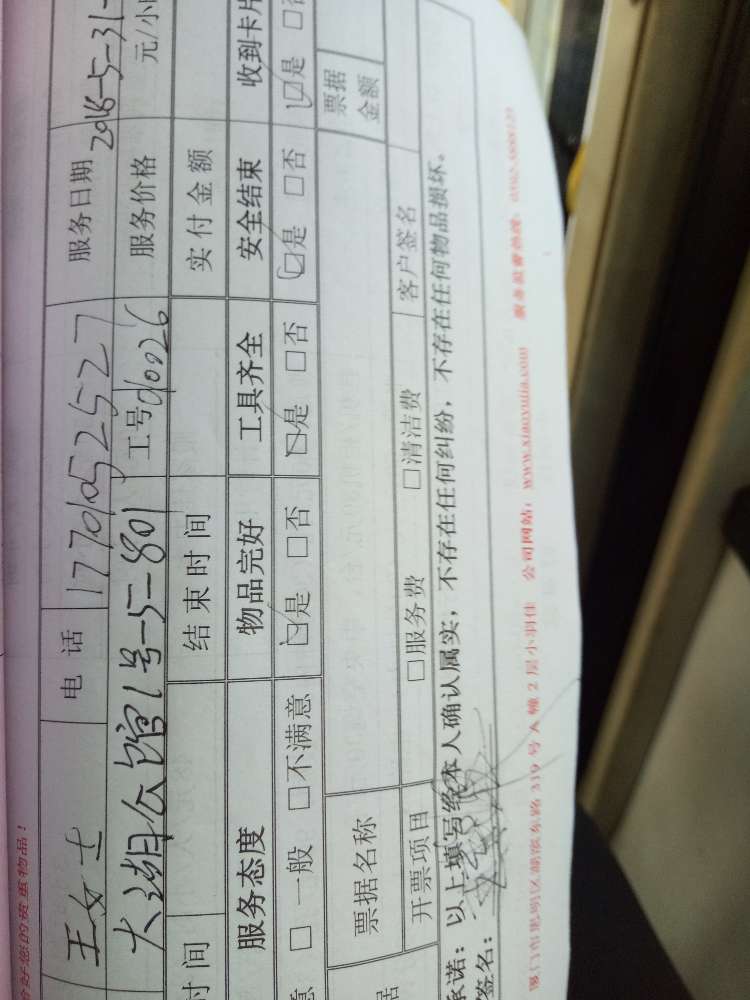 好您的贵重物品！
王女士 电话 17701052527 服务日期 2018-5-31
大湖公馆1号-5-801 工号 d0026 服务价格 元/小
时间 结束时间 实付金额
服务态度 物品完好 工具齐全 安全结束 收到卡片
意 □一般 □不满意 ☑是 □否 ☑是 □否 ☑是 □否 ☑是
票据名称 票据金额
开票项目 □服务费 □清洁费 客户签名
承诺：以上填写经本人确认属实，不存在任何纠纷，不存在任何物品损坏。
签名：
319号A幢2层小羽佳 公司网站：www.xiaoyujia.com